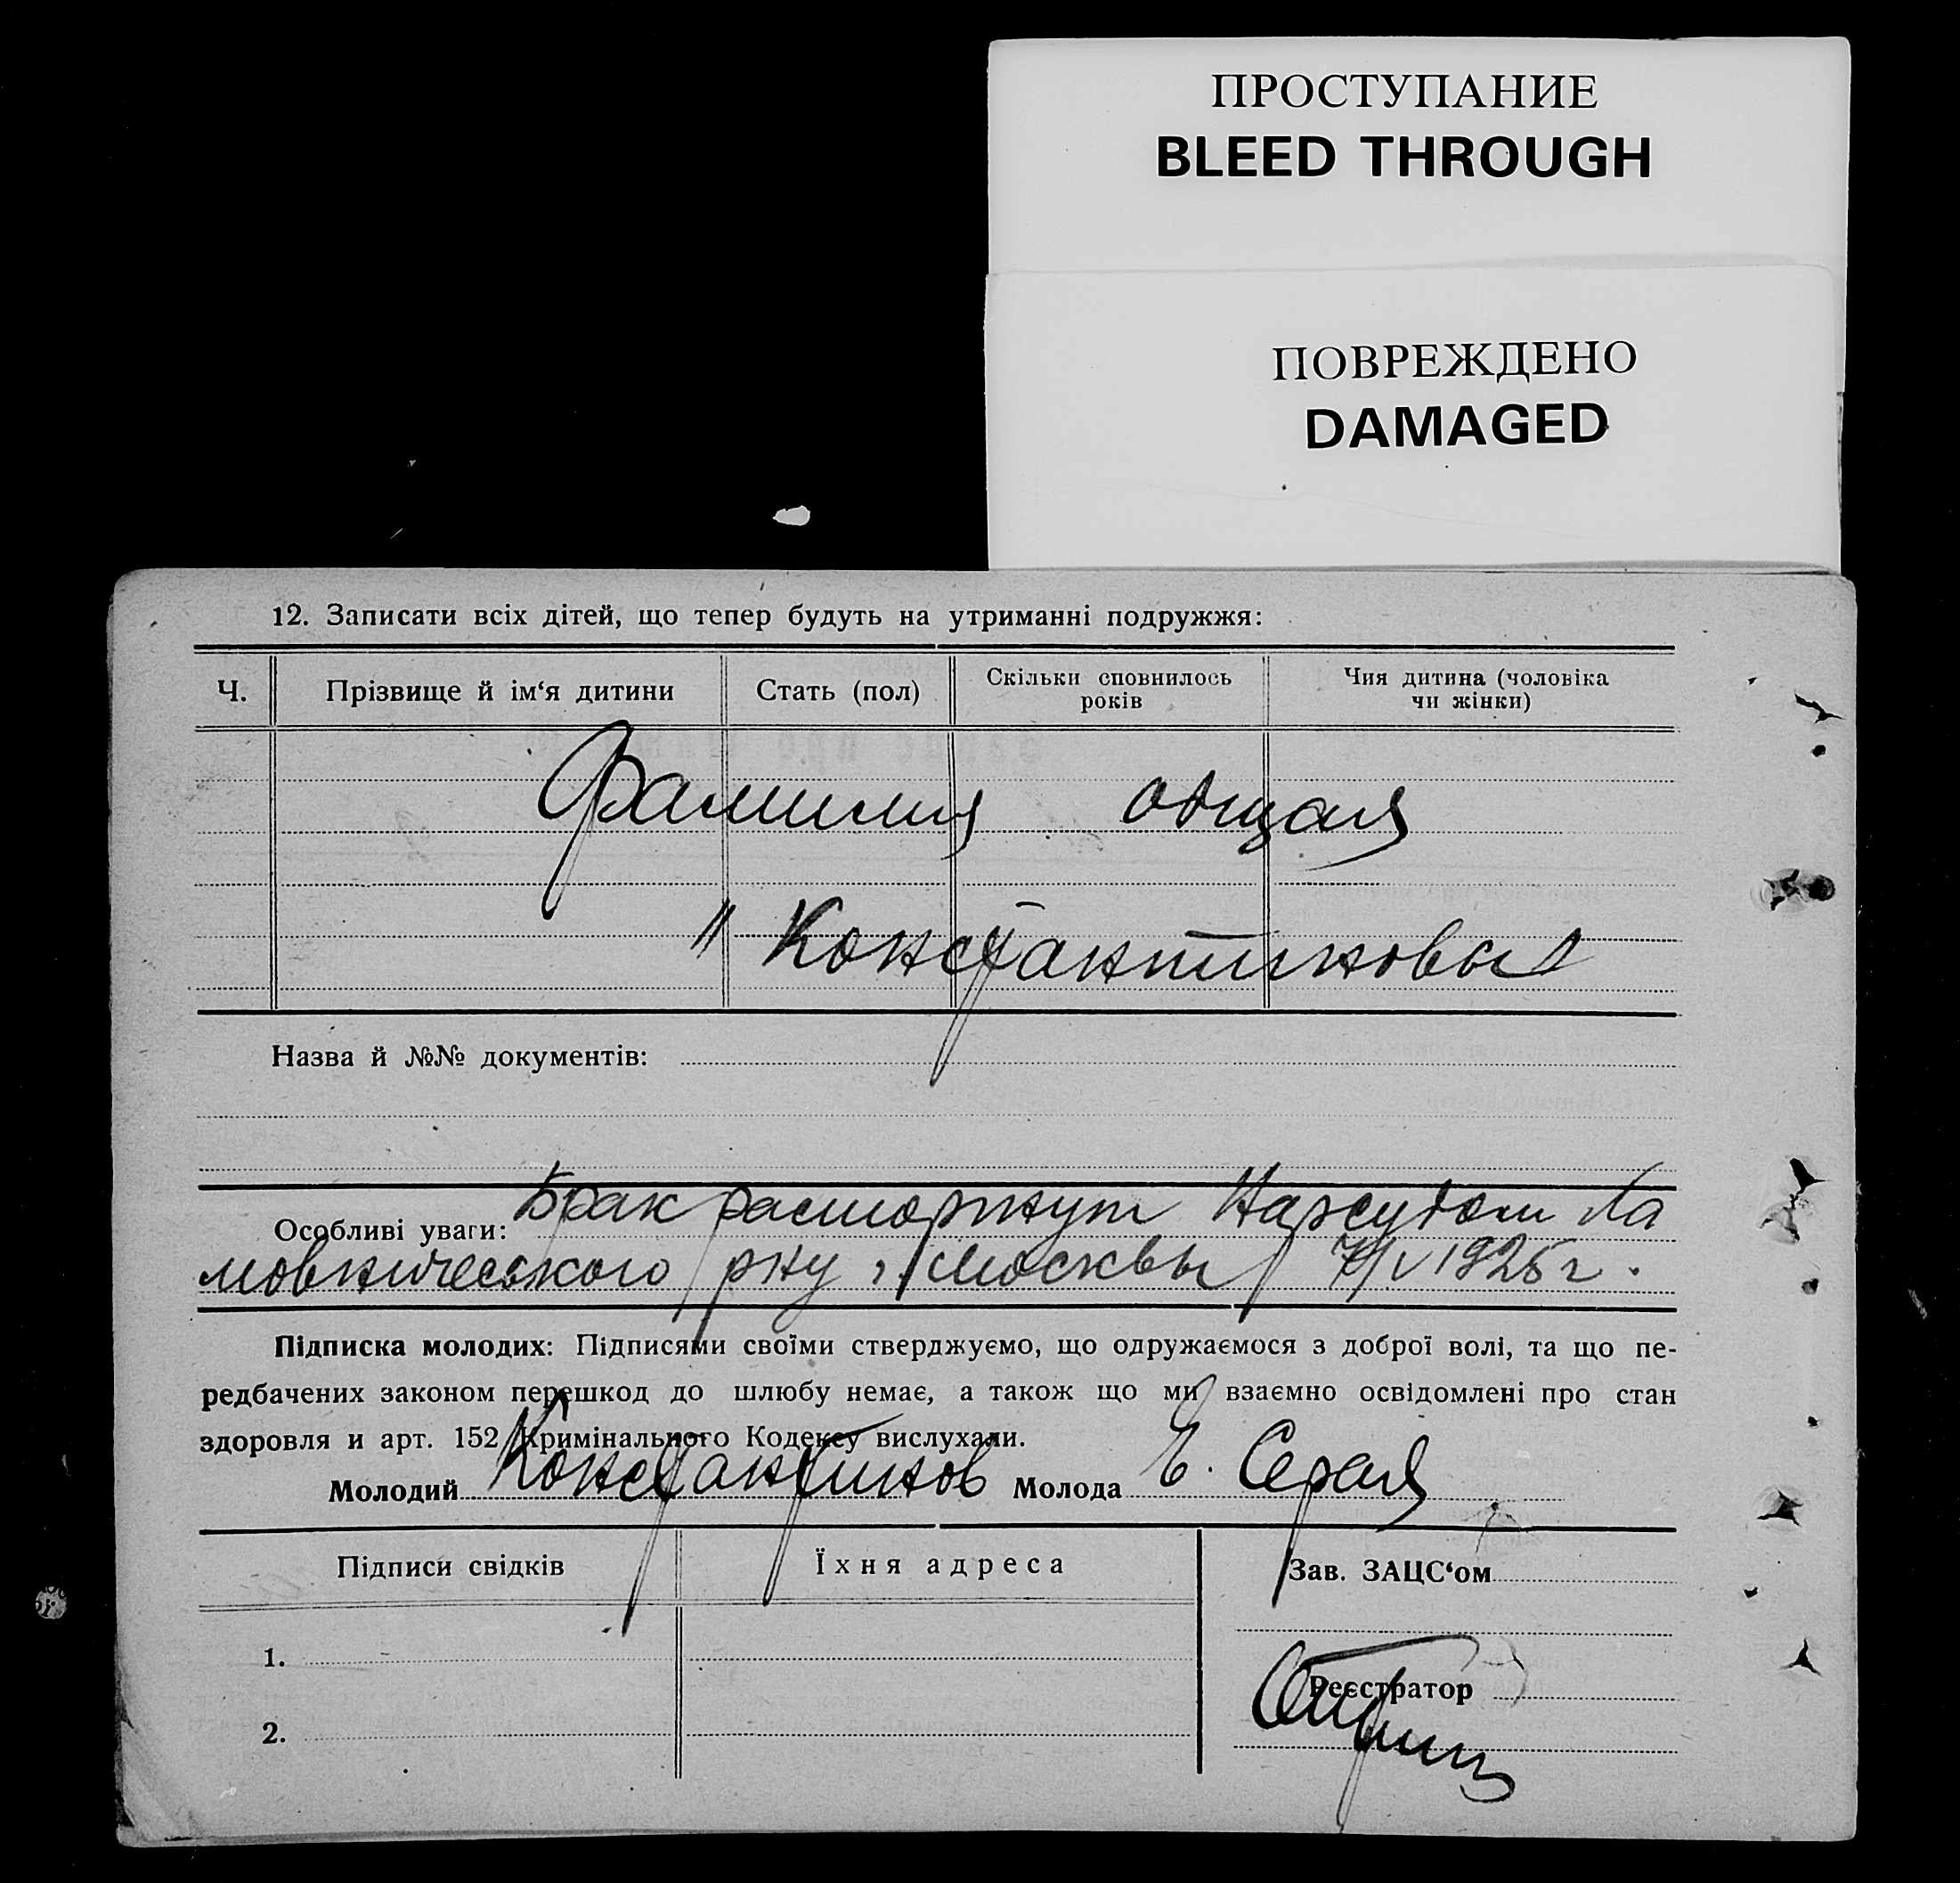 ПРОСТУПАНИЕ
BLEED THROUGH
ПОВРЕЖДЕНО
DAMAGED
12. Записати всіх дітей, що тепер будуть на утриманні подружжя:
Ч. Прізвище й ім‘я дитини Стать (пол) Скільки сповнилось років Чия дитина (чоловіка чи жінки)
Фамилия общая
" Константиновы
Назва й №№ документів:
Особливі уваги: Брак расторгнут Нарсудом Ха
мовнического р-ну г. Москвы
Підписка молодих: Підписями своїми стверджуємо, що одружаємося з доброї волі, та що пе-
редбачених законом перешкод до шлюбу немає, а також що ми взаємно освідомлені про стан
здоровля и арт. 152 Кримінального Кодексу вислухали.
Молодий Константинов Молода Е. Серая
Підписи свідків Їхня адреса Зав. ЗАЦС‘ом
1.
Реєстратор
2.